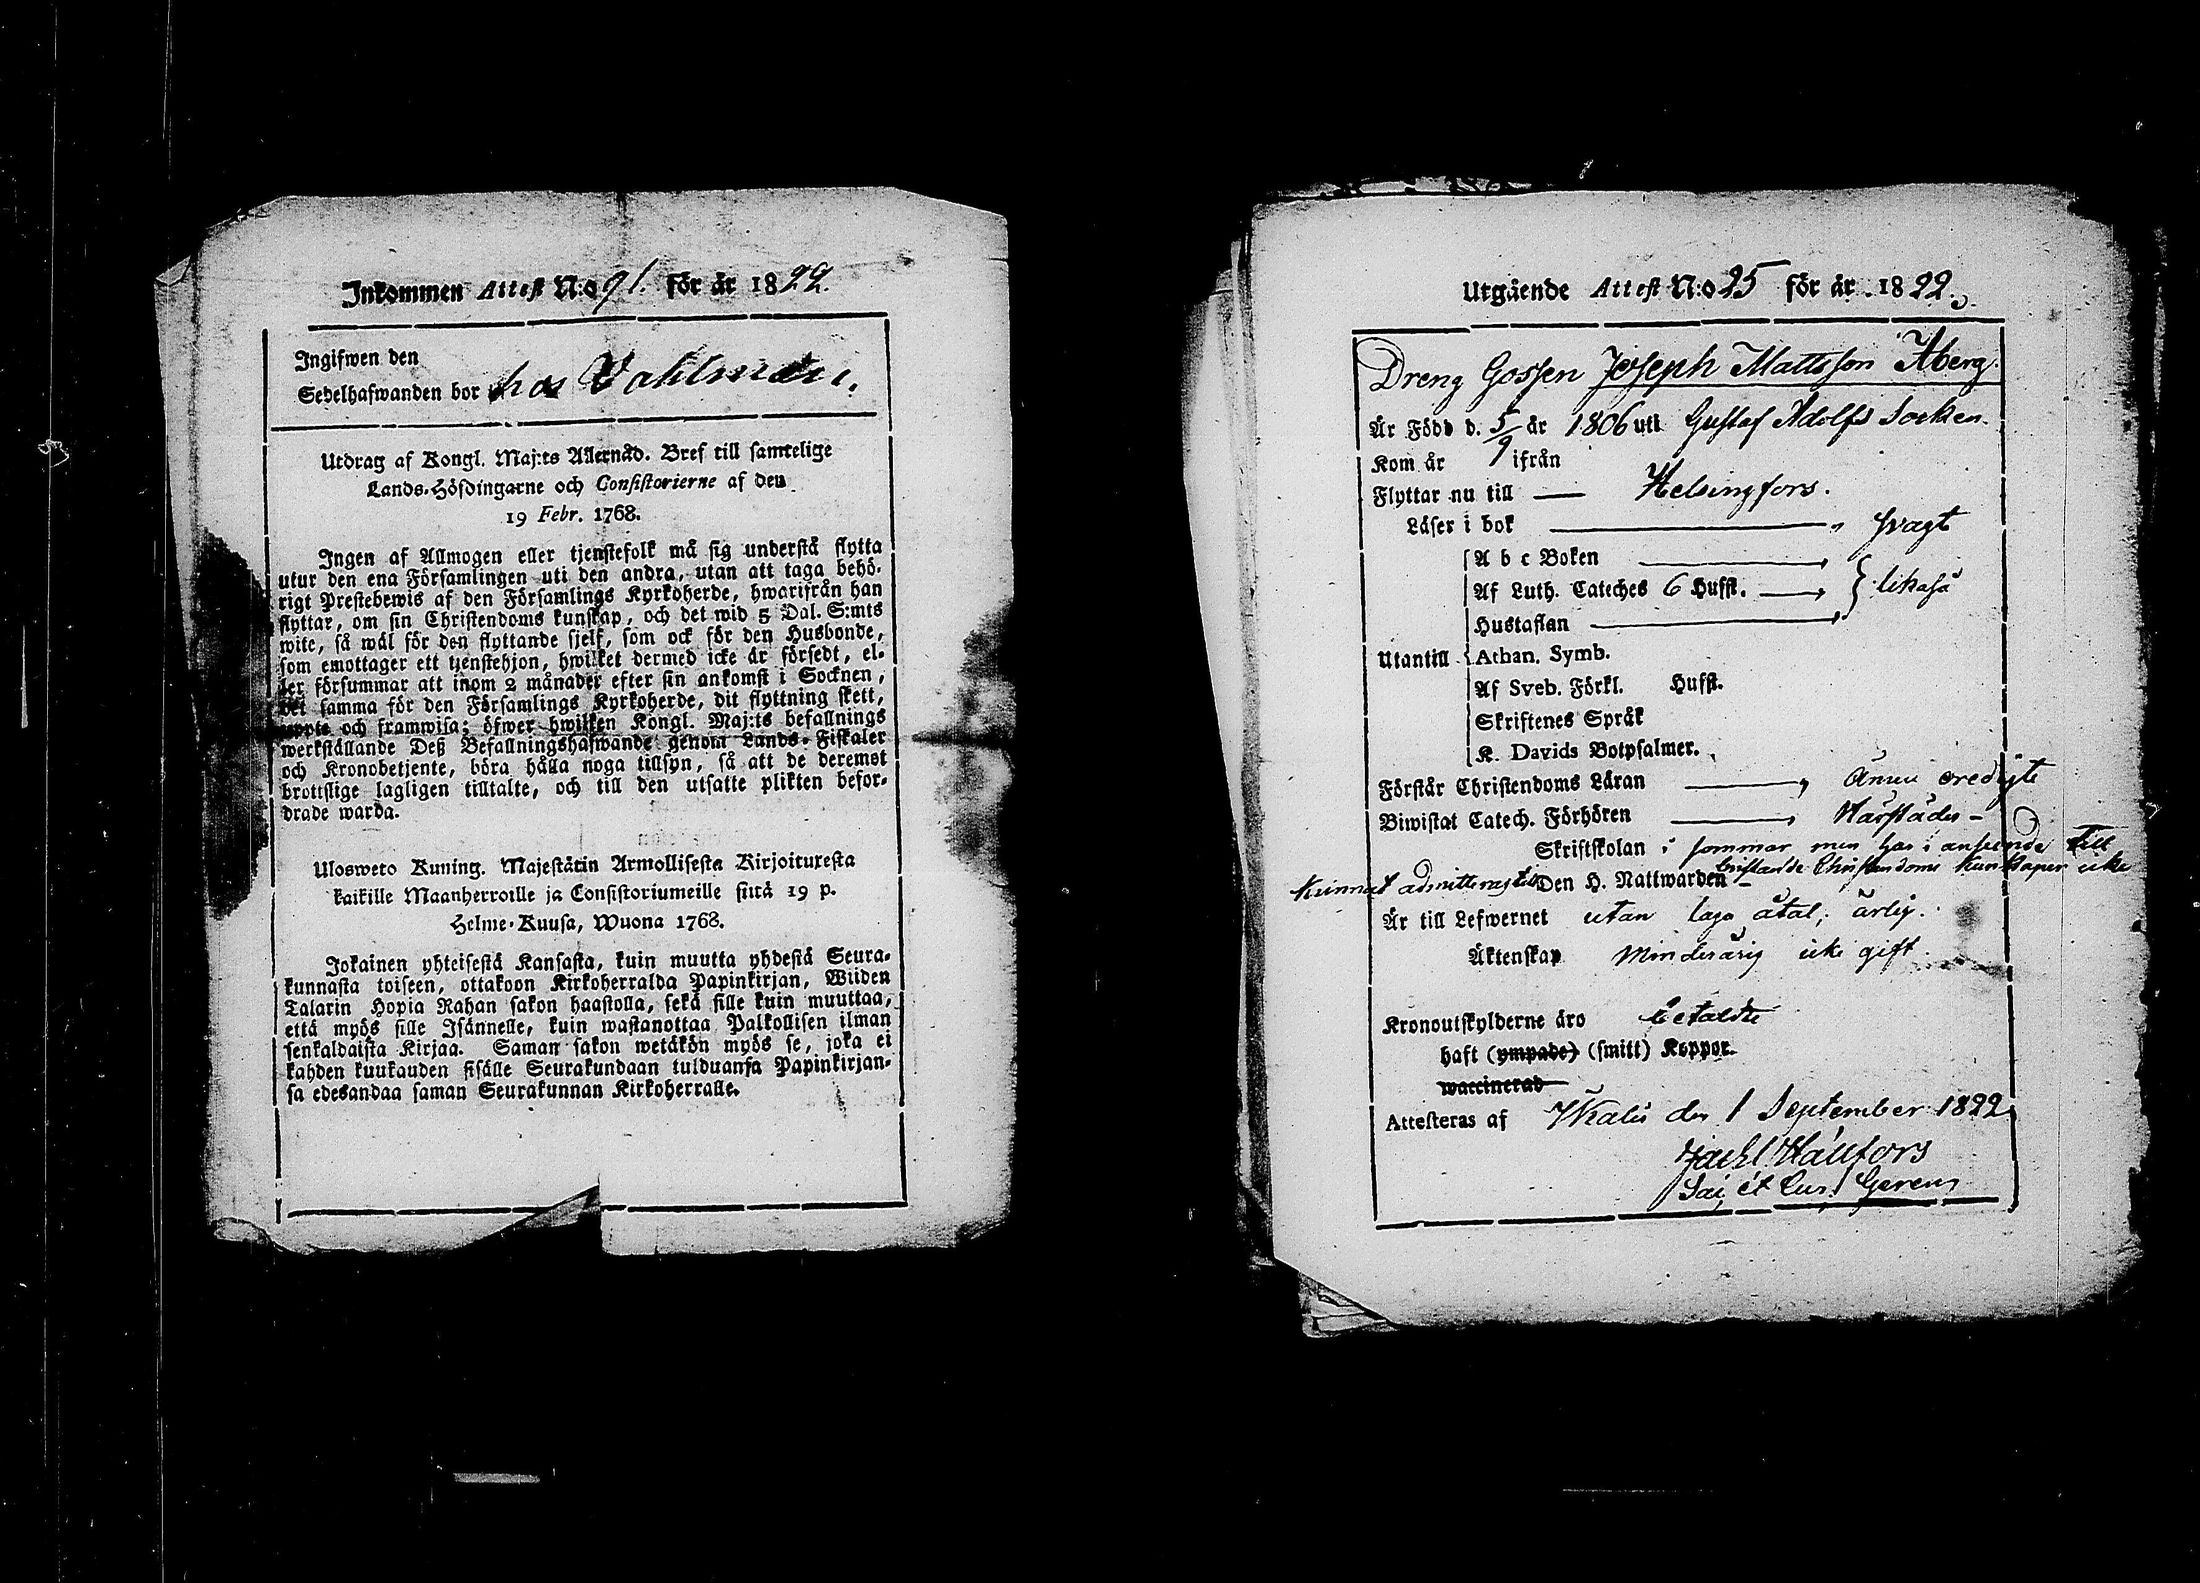 Inkommen Attest N:o 91. för år 1822.
Ingifwen den
Sedelhafwanden bor hos Vahlman.
Utdrag af Kongl. Maj:ts Allernåd. Bref till samtelige
Lands-Höfdingarne och Consistorierne af den
19 Febr. 1768.
Ingen af Allmogen eller tjenstefolk må sig understå flytta
utur den ena Församlingen uti den andra, utan att taga behö-
rigt Prestebewis af den Församlings Kyrkoherde, hwarifrån han
flyttar, om sin Christendoms kunskap, och det wid 5 Dal. S:mts
wite, så wäl för den flyttande sjelf, som ock för den Husbonde,
som emottager ett tjenstehjon, hwilket dermed icke är försedt, el-
ler försummar att inom 2 månader efter sin ankomst i Socknen,
det samma för den Församlings Kyrkoherde, dit flyttning skett,
uppte och framwisa; öfwer hwilken Kongl. Maj:ts befallnings
werkställande Deß Befallningshafwande genom Lands-Fiskaler
och Kronobetjente, böra hålla noga tillsyn, så att de deremot
brottslige lagligen tilltalte, och till den utsatte plikten befor-
drade warda.
Ulosweto Kuning. Majestätin Armollisesta Kirjoituxesta
kaikille Maanherroille ja Consistoriumeille siitä 19 p.
Helme-Kuusa, Wuona 1768.
Jokainen yhteisestä Kansasta, kuin muutta yhdestä Seura-
kunnasta toiseen, ottakoon Kirkoherralda Papinkirjan, Wiiden
Talarin Hopia Rahan sakon haastolla, sekä sille kuin muuttaa,
että myös sille Isännelle, kuin wastanottaa Palkollisen ilman
senkaldaista Kirjaa. Saman sakon wetäkön myös se, joka ei
kahden kuukauden sisälle Seurakundaan tulduansa Papinkirjan-
sa edesandaa saman Seurakunnan Kirkoherralle.
Utgående Attest N:o 25 för år 1822.
Dreng Gossen Joseph Mattsson Åberg.
Är Född d. 5/9 år 1806 uti Gustaf Adolfs Socken.
Kom år ifrån
Flyttar nu till Helsingfors.
Läser i bok svagt
A b c Boken
Af Luth. Cateches 6 Hufst. likaså
Hustaflan
Utantill Athan. Symb.
Af Sveb. Förkl. Hufst.
Skriftenes Språk
K. Davids Botpsalmer.
Förstår Christendoms Läran Ännu oredigt
Biwistat Catech. Förhören Härstädes
Skriftskolan i sommar men har i anseende till
bristande Christendoms Kunskaper icke
kunnat admitteras till Den H. Nattwarden
Är till Lefwernet utan laga åtal, ärlig.
Äktenskap Minderårig icke gift.
Kronoutskylderne äro betalde
haft (ympade) (smitt) Koppor.
waccinerad
Attesteras af Ithalis den 1 September 1822
Hällfors
Sac. et Cur. Gerens